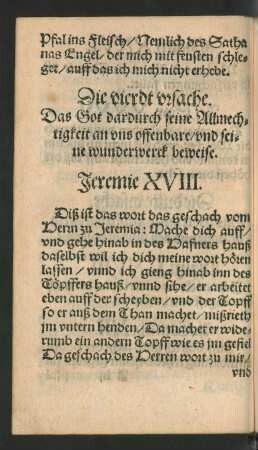 Pfal ins Fleisch/Nemlich des Satha
nas Engel/der mich mit feusten schle-
ger/auff das ich mich nicht erhebe.
Die vierdt vrsache.
Das Got dardurch seine Allmech-
tigkeit an vns offenbare/vnd sei-
ne wunderwerck beweise.
Jeremie XVIII.
Diß ist das wort das geschach vom
Herrn zu Jeremia: Mache dich auff/
vnd gehe hinab in des Hafners hauß
daselbst wil ich dich meine wort hören
lassen/vnnd ich gieng hinab inn des
Töpffers hauß/vnnd sihe/er arbeitet
eben auff der scheyben/vnd der Topff
so er auß dem Than machet/mißrieth
jm vntern henden/Da machet er wide-
rumb ein andern Topff wie es jm gefiel
Da geschach des Herren wort zu mir/
vnd